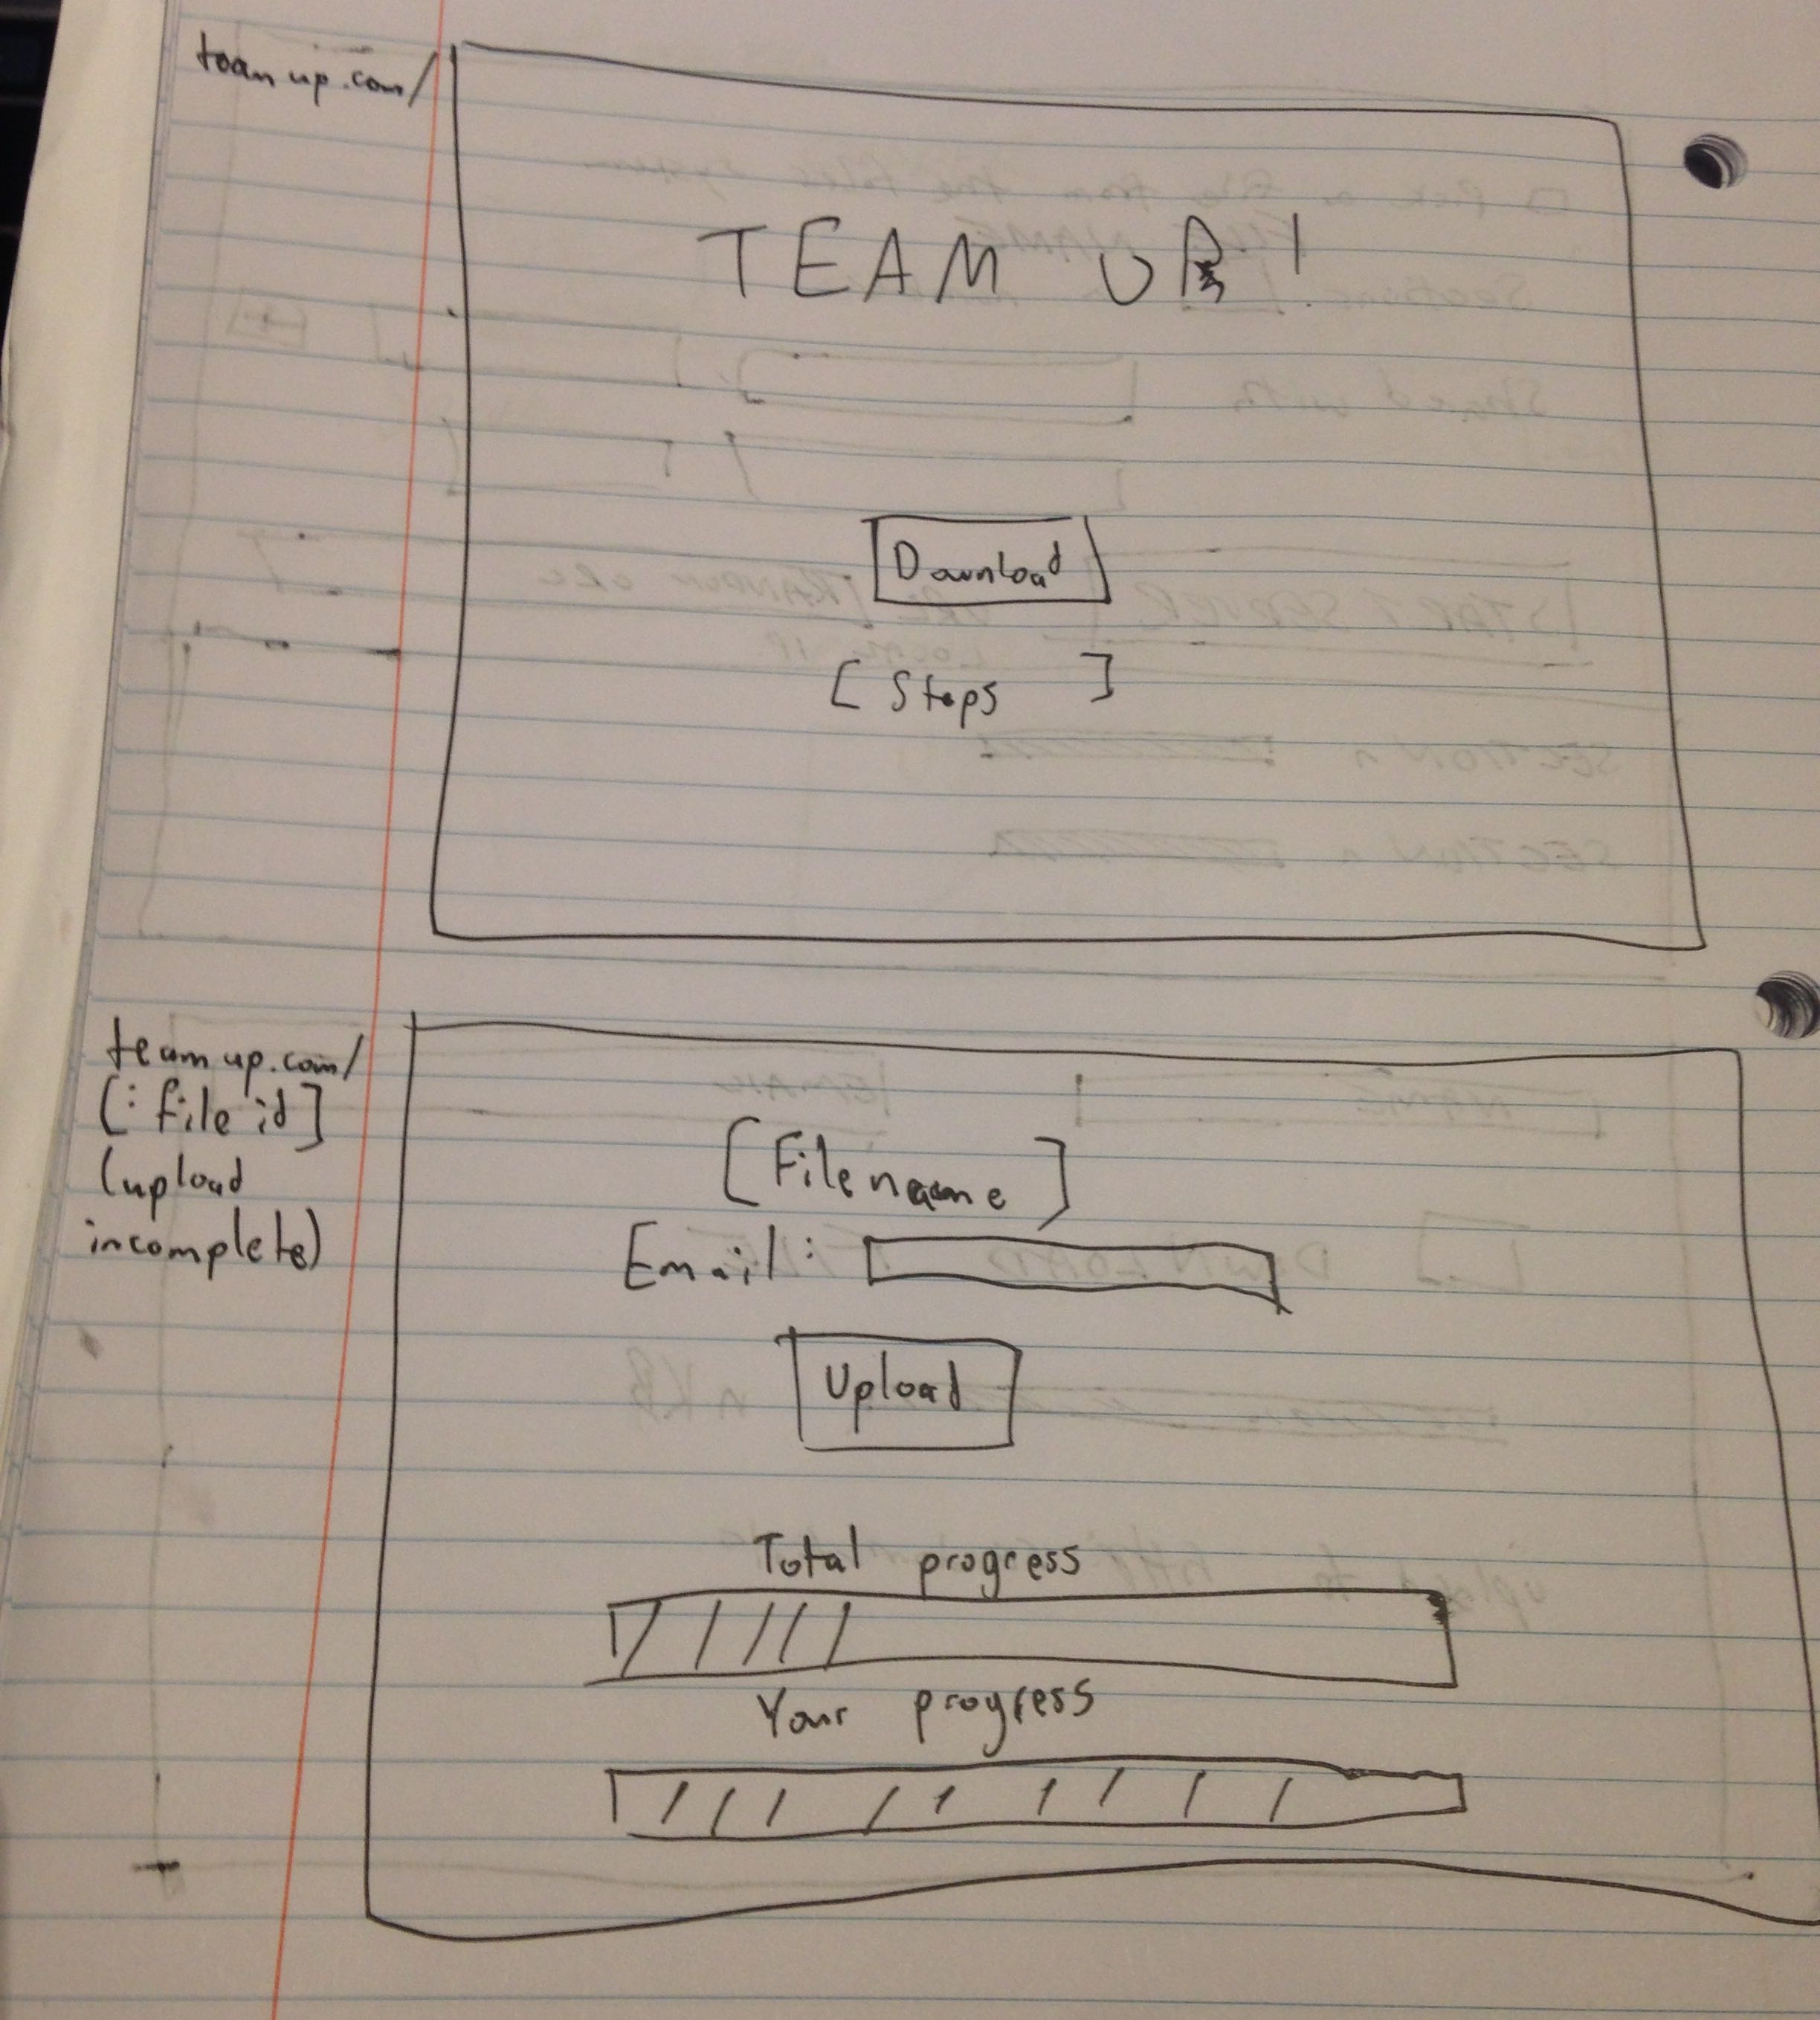 teamup.com/
TEAM UP!
Download
[Steps ]
teamup.com/
[:file id]
(upload
incomplete)
[Filename]
Email:
Upload
Total progress
Your progress